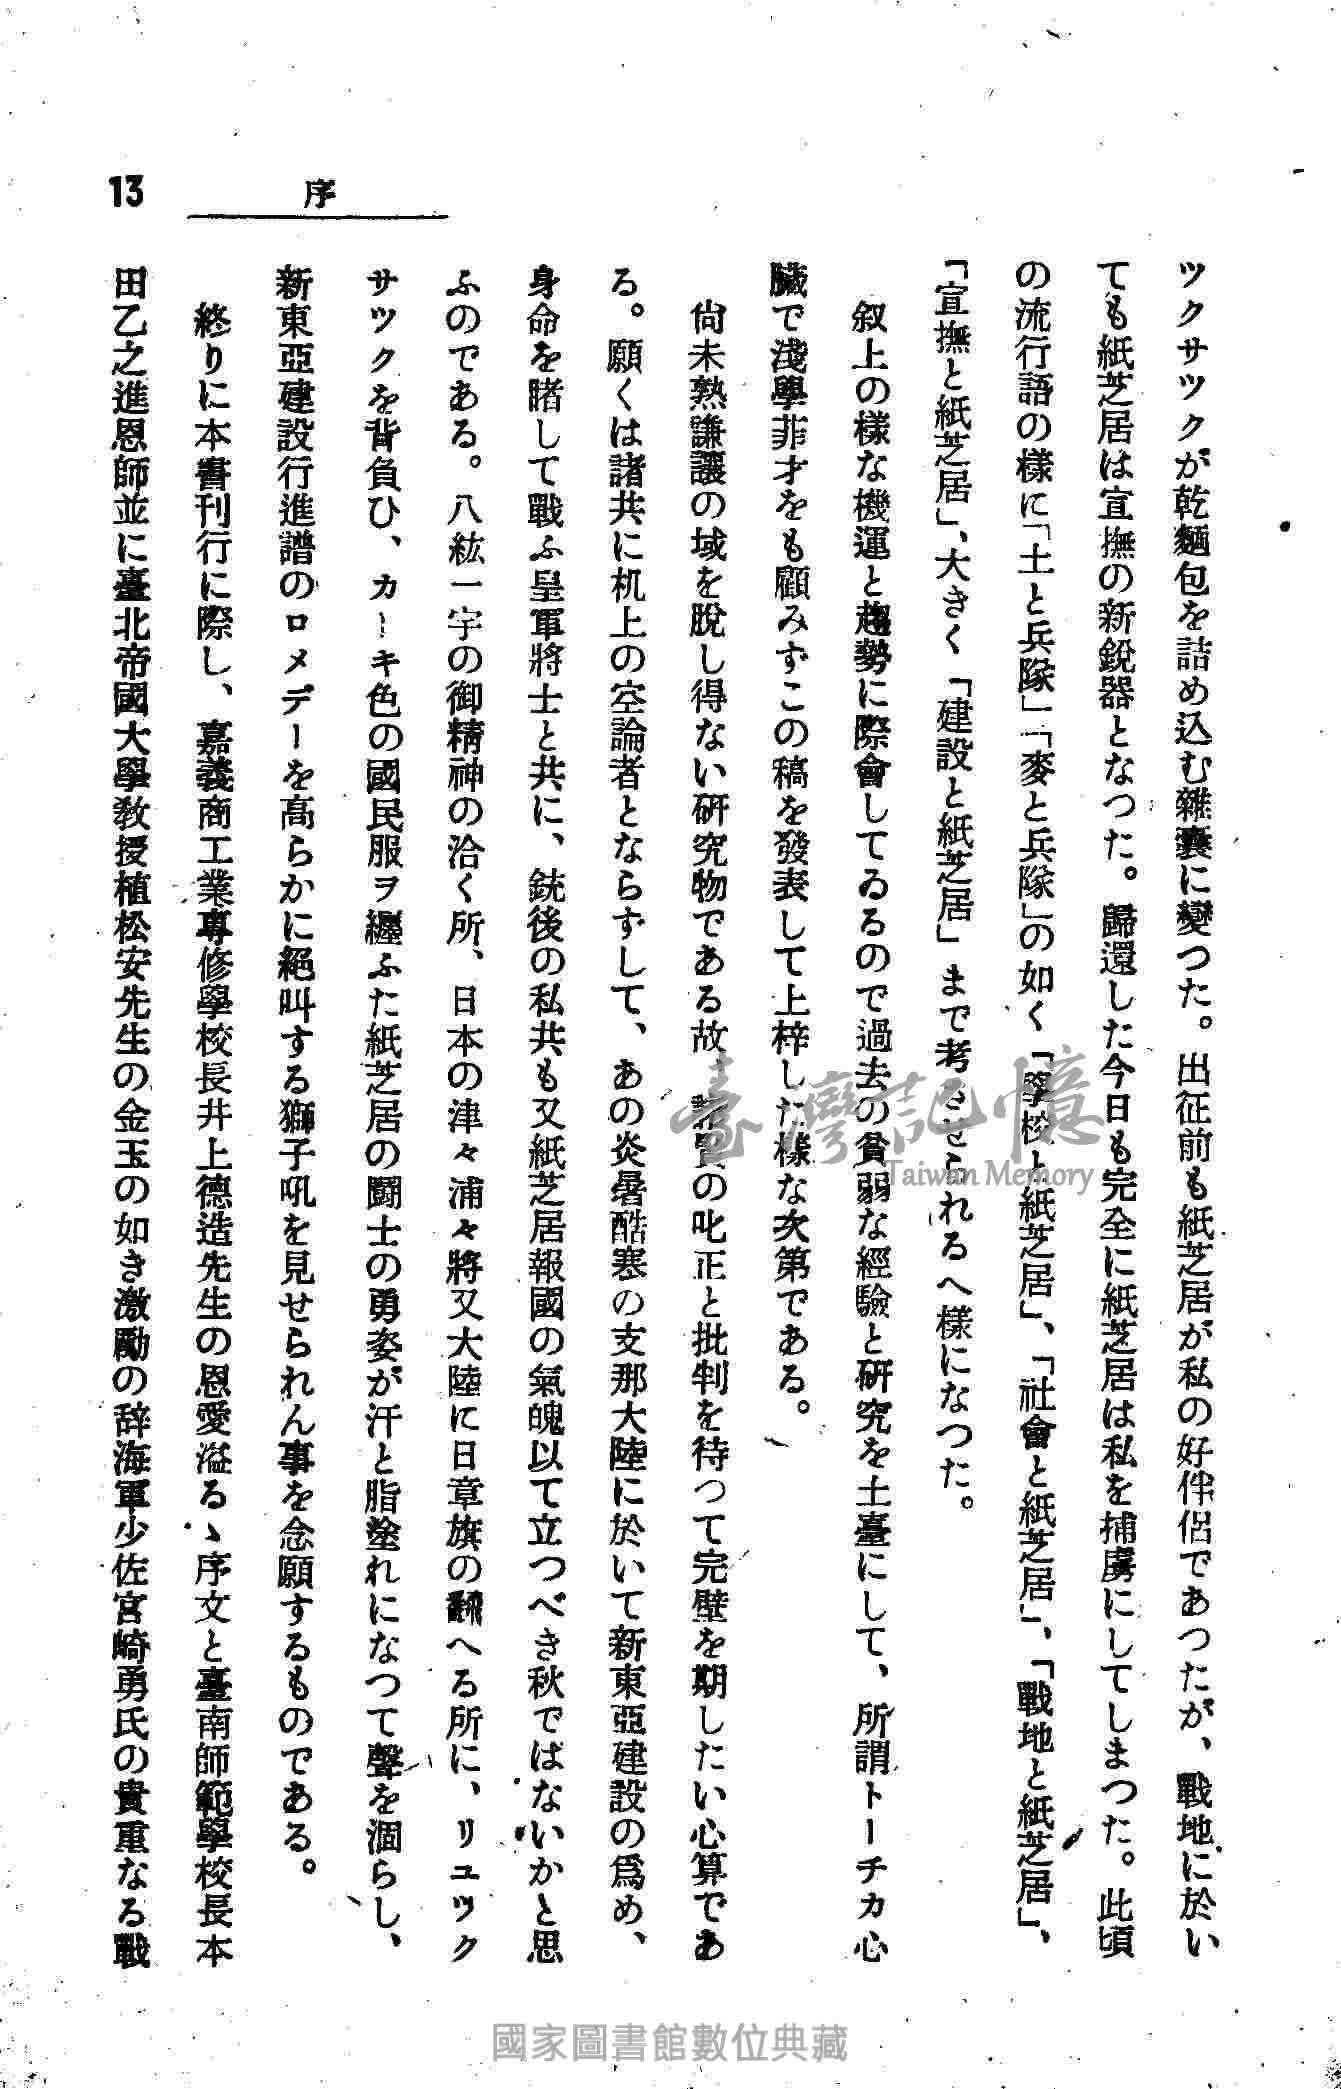 13
序
ツクサツクが乾麵包を詰め込む雜囊に變つた。出征前も紙芝居が私の好伴侶であつたが、戰地に於い
ても紙芝居は宣撫の新銳器となつた。歸還した今日も完全に紙芝居は私を捕虜にしてしまつた。此頃
の流行語の樣に「土と兵隊」「麥と兵隊」の如く「學校と紙芝居」、「社會と紙芝居」、「戰地と紙芝居」、
「宣撫と紙芝居」、大きく「建設と紙芝居」まで考させられるへ樣になつた。
叙上の樣な機運と趨勢に際會してゐるので過去の貧弱な經驗と硏究を土臺にして、所謂トーチカ心
臟で淺學菲才をも顧みずこの稿を發表して上梓した樣な次第である。
尙未熟謙讓の域を脫し得ない硏究物である故、諸賢の叱正と批判を待つて完壁を期したい心算であ
る。願くは諸共に机上の空論者とならずして、あの炎暑酷寒の支那大陸に於いて新東亞建設の爲め、
身命を賭して戰ふ皇軍將士と共に、銃後の私共も又紙芝居報國の氣魄以て立つべき秋でばないかと思
ふのである。八紘一宇の御精神の洽く所、日本の津々浦々將又大陸に日章旗の翻へる所に、リユツク
サツクを背負ひ、カーキ色の國民服ヲ纏ふた紙芝居の鬪士の勇姿が汗と脂塗れになつて聲を涸らし、
新東亞建設行進譜のロメデーを高らかに絕叫する獅子吼を見せられん事を念願するものである。
終りに本書刊行に際し、嘉義商工業專修學校長井上德造先生の恩愛溢るゝ序文と臺南師範學校長本
田乙之進恩師並に臺北帝國大學敎授植松安先生の金玉の如き激勵の辞海軍少佐宮崎勇氏の貴重なる戰
臺灣記憶
Taiwan Memory
國家圖書館數位典藏